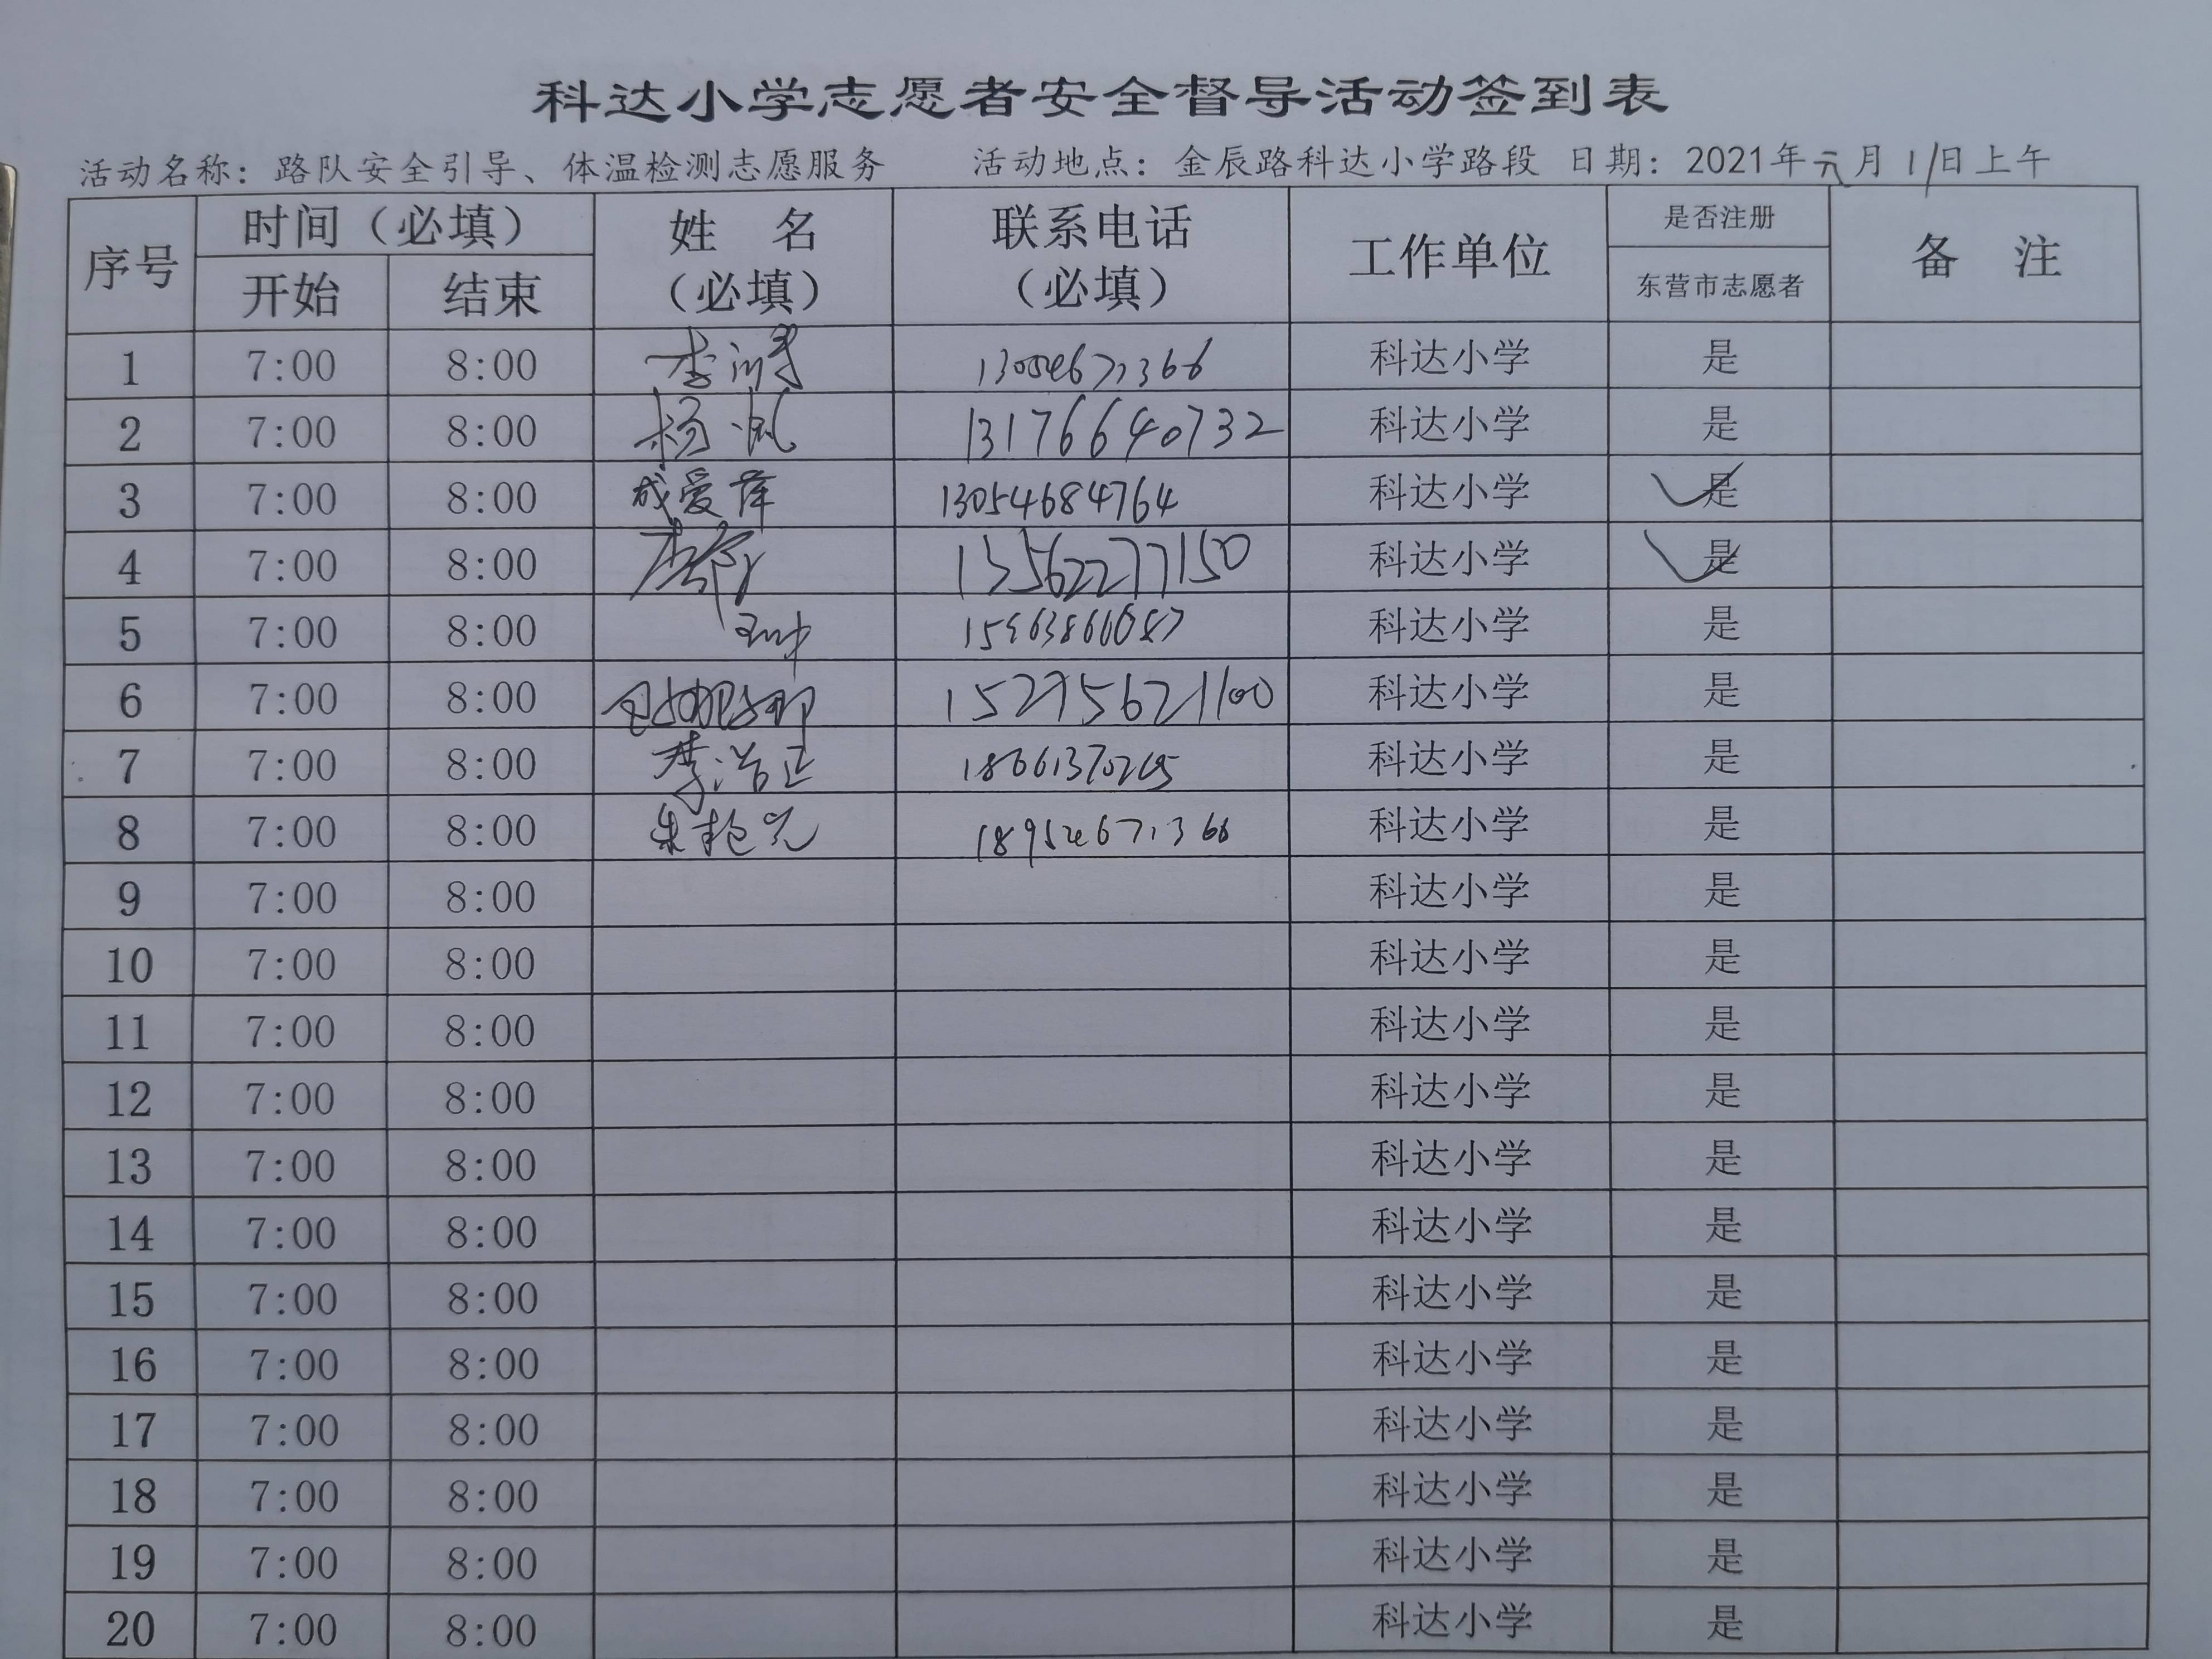 科达小学志愿者安全督导活动签到表
活动名称：路队安全引导、体温检测志愿服务 活动地点：金辰路科达小学路段 日期：2021年元月11日上午
序号 时间（必填） 姓 名（必填） 联系电话（必填） 工作单位 是否注册 备 注
开始 结束 东营市志愿者
1 7:00 8:00 李 科达小学 是
2 7:00 8:00 杨 13176640732 科达小学 是
3 7:00 8:00 成爱萍 13054684764 科达小学 是
4 7:00 8:00 13562277150 科达小学 是
5 7:00 8:00 科达小学 是
6 7:00 8:00 15275621100 科达小学 是
7 7:00 8:00 李浩正 18661370265 科达小学 是
8 7:00 8:00 朱艳 科达小学 是
9 7:00 8:00 科达小学 是
10 7:00 8:00 科达小学 是
11 7:00 8:00 科达小学 是
12 7:00 8:00 科达小学 是
13 7:00 8:00 科达小学 是
14 7:00 8:00 科达小学 是
15 7:00 8:00 科达小学 是
16 7:00 8:00 科达小学 是
17 7:00 8:00 科达小学 是
18 7:00 8:00 科达小学 是
19 7:00 8:00 科达小学 是
20 7:00 8:00 科达小学 是